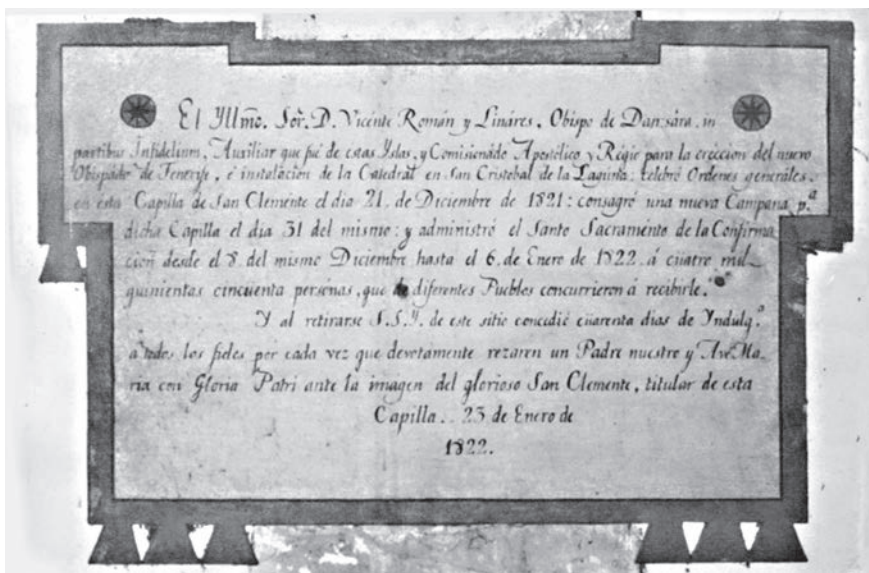 El Yllmo. Sor. D. Vicente Román y Lináres, Obispo de Dansára, in
partibus Infidelium, Auxiliar que fué de estas Yslas, y Comisionádo Apostólico y Régio para la ereccion del nuevo
Obispádo de Tenerife, é instalación de la Catedrál en San Cristobal de la Lagúna: celebró Ordenes generáles,
en ésta Capilla de San Clemente el dia 21. de Diciembre de 1821: consagró una nueva Campana p.ª
dicha Capilla el dia 31 del mismo: y administró el Santo Sacraménto de la Confirma
cion desde el 8. del mismo Diciembre hasta el 6. de Enero de 1822. á cüatre mil
quinientas cincuenta personas, que de diferentes Pueblos concurrieron á recibirle.
Y al retirarse S.S.Y. de este sitio concedió cüarenta dias de Yndulg.ª
a todos los fieles por cada vez que devotamente rezaren un Padre nuestro y Ave Ma-
ria con Gloria Patri ante la imagen del glorioso San Clemente, titular de esta
Capilla.. 23 de Enero de
1822.